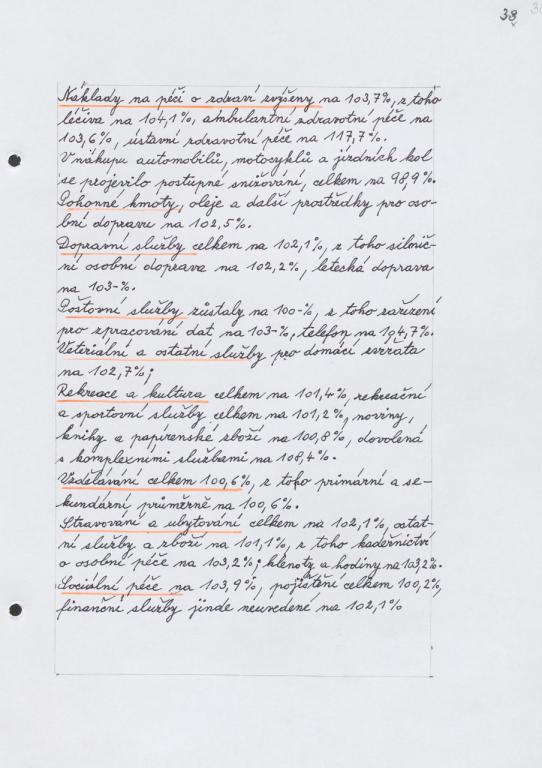 38
Náklady na péči o zdraví zvýšeny na 103,7%, z toho
léčiva na 104,1%, ambulantní zdravotní péče na
103,6%, ústavní zdravotní péče na 117,7%.
V nákupu automobilů, motocyklů a jízdních kol
se projevilo postupné snižování, celkem na 98,9%.
Pohonné hmoty, oleje a další prostředky pro oso-
bní dopravu na 102,5%.
Dopravní služby celkem na 102,1%, z toho silnič-
ní osobní doprava na 102,2%, letecká doprava
na 103-%.
Poštovní služby zůstaly na 100-%, z toho zařízení
pro zpracování dat na 103-%, telefon na 104,7%.
Veteriální a ostatní služby pro domácí zvířata
na 102,7%;
Rekreace a kultura celkem na 101,4%, rekreační
a sportovní služby celkem na 101,2%, noviny,
knihy a papírenské zboží na 100,8%, dovolená
s komplexními službami na 108,4%.
Vzdělávání celkem 100,6%, z toho primární a se-
kundární průměrně na 100,6%.
Stravování a ubytování celkem na 102,1%, ostat-
ní služby a zboží na 101,1%, z toho kadeřnictví
o osobní péče na 103,2%; klenoty a hodiny na 103,2%.
Sociální péče na 103,9%, pojištění celkem 100,2%,
finanční služby jinde neuvedené na 102,1%